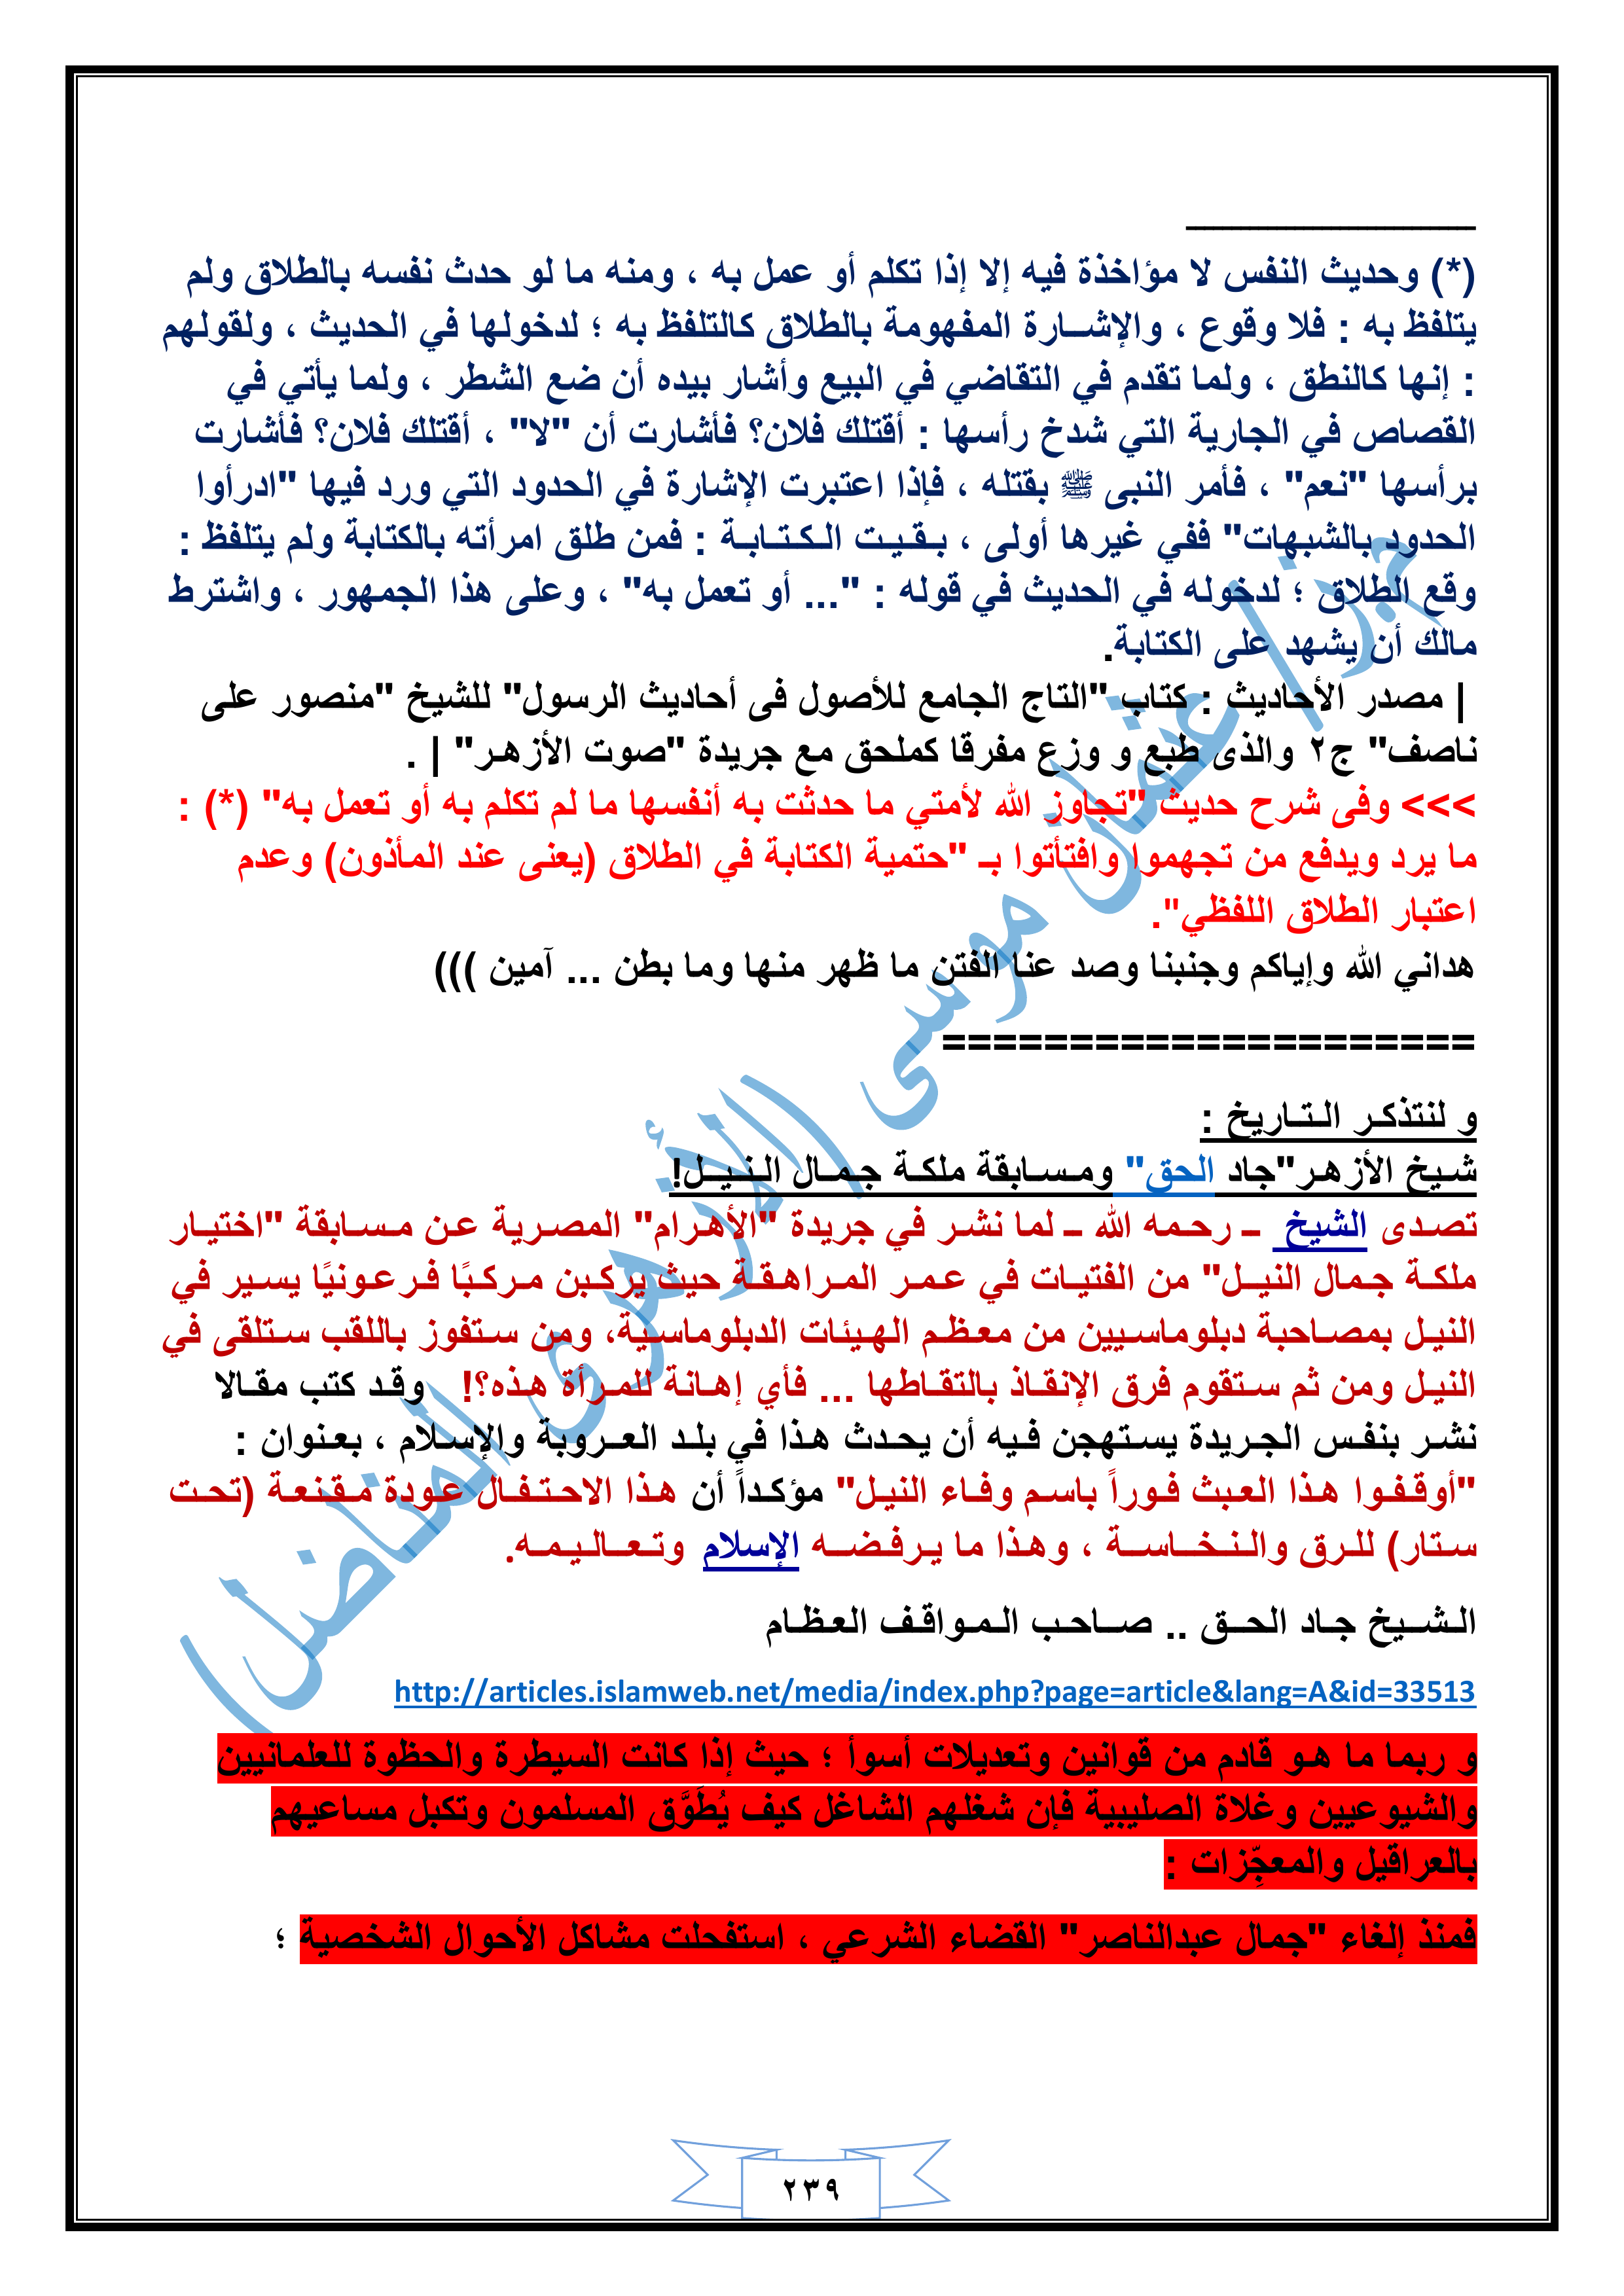 (*) وحديث النفس لا مؤاخذة فيه إلا إذا تكلم أو عمل به ، ومنه ما لو حدث نفسه بالطلاق ولم
يتلفظ به : فلا وقوع ، والإشــارة المفهومة بالطلاق كالتلفظ به ؛ لدخولها في الحديث ، ولقولهم
: إنها كالنطق ، ولما تقدم في التقاضي في البيع وأشار بيده أن ضع الشطر ، ولما يأتي في
القصاص في الجارية التي شدخ رأسها : أقتلك فلان؟ فأشارت أن "لا" ، أقتلك فلان؟ فأشارت
برأسها "نعم" ، فأمر النبى ﷺ بقتله ، فإذا اعتبرت الإشارة في الحدود التي ورد فيها "ادرأوا
الحدود بالشبهات" ففي غيرها أولى ، بـقـيـت الـكـتـابـة : فمن طلق امرأته بالكتابة ولم يتلفظ :
وقع الطلاق ؛ لدخوله في الحديث في قوله : "... أو تعمل به" ، وعلى هذا الجمهور ، واشترط
مالك أن يشهد على الكتابة.
| مصدر الأحاديث : كتاب "التاج الجامع للأصول فى أحاديث الرسول" للشيخ "منصور على
ناصف" ج٢ والذى طبع و وزع مفرقا كملحق مع جريدة "صوت الأزهـر" | .
>>> وفى شرح حديث "تجاوز الله لأمتي ما حدثت به أنفسها ما لم تكلم به أو تعمل به" (*) :
ما يرد ويدفع من تجهموا وافتأتوا بـ "حتمية الكتابة في الطلاق (يعنى عند المأذون) وعدم
اعتبار الطلاق اللفظي".
هداني الله وإياكم وجنبنا وصد عنا الفتن ما ظهر منها وما بطن ... آمين )))
=====================
و لنتذكـر الـتـاريخ :
شـيخ الأزهـر"جاد الحق" ومـسـابقة ملكـة جـمـال الـنـيـل!
تصـدى الشيخ ــ رحـمه الله ــ لما نشـر في جريدة "الأهـرام" المصـرية عـن مـسـابقة "اختيـار
ملكـة جـمال النيــل" من الفتيـات في عـمـر المـراهـقـة حيث يركـبن مـركـبًا فـرعـونيًا يسـير في
النيـل بمصـاحبة دبلوماسـيين من معـظـم الهـيئات الدبلوماسـية، ومن سـتفوز باللقب سـتلقى في
النيـل ومن ثم سـتقوم فرق الإنقـاذ بالتقـاطها ... فأي إهـانة للمـرأة هـذه؟! وقـد كتب مقـالا
نشـر بنفـس الجـريدة يسـتهجن فـيه أن يحـدث هـذا في بلـد العـروبة والإسـلام ، بعـنوان :
"أوقـفـوا هـذا العـبث فـوراً باسـم وفـاء النيـل" مؤكـداً أن هـذا الاحـتـفـال عـودة مـقـنعـة (تحـت
سـتار) للـرق والـنـخــاســة ، وهـذا ما يـرفـضــه الإسلام وتـعــالـيـمــه.
الـشــيخ جـاد الحــق .. صــاحـب الـمـواقـف العـظـام
http://articles.islamweb.net/media/index.php?page=article&lang=A&id=33513
و ربما ما هـو قادم من قوانين وتعديلات أسوأ ؛ حيث إذا كانت السيطرة والحظوة للعلمانيين
والشيوعيين وغلاة الصليبية فإن شغلهم الشاغل كيف يُطَوَّق المسلمون وتكبل مساعيهم
بالعراقيل والمعجِّزات :
فمنذ إلغاء "جمال عبدالناصر" القضاء الشرعي ، استفحلت مشاكل الأحوال الشخصية ؛
عثمان موسى (الأزهرى المناضل)
٢٣٩